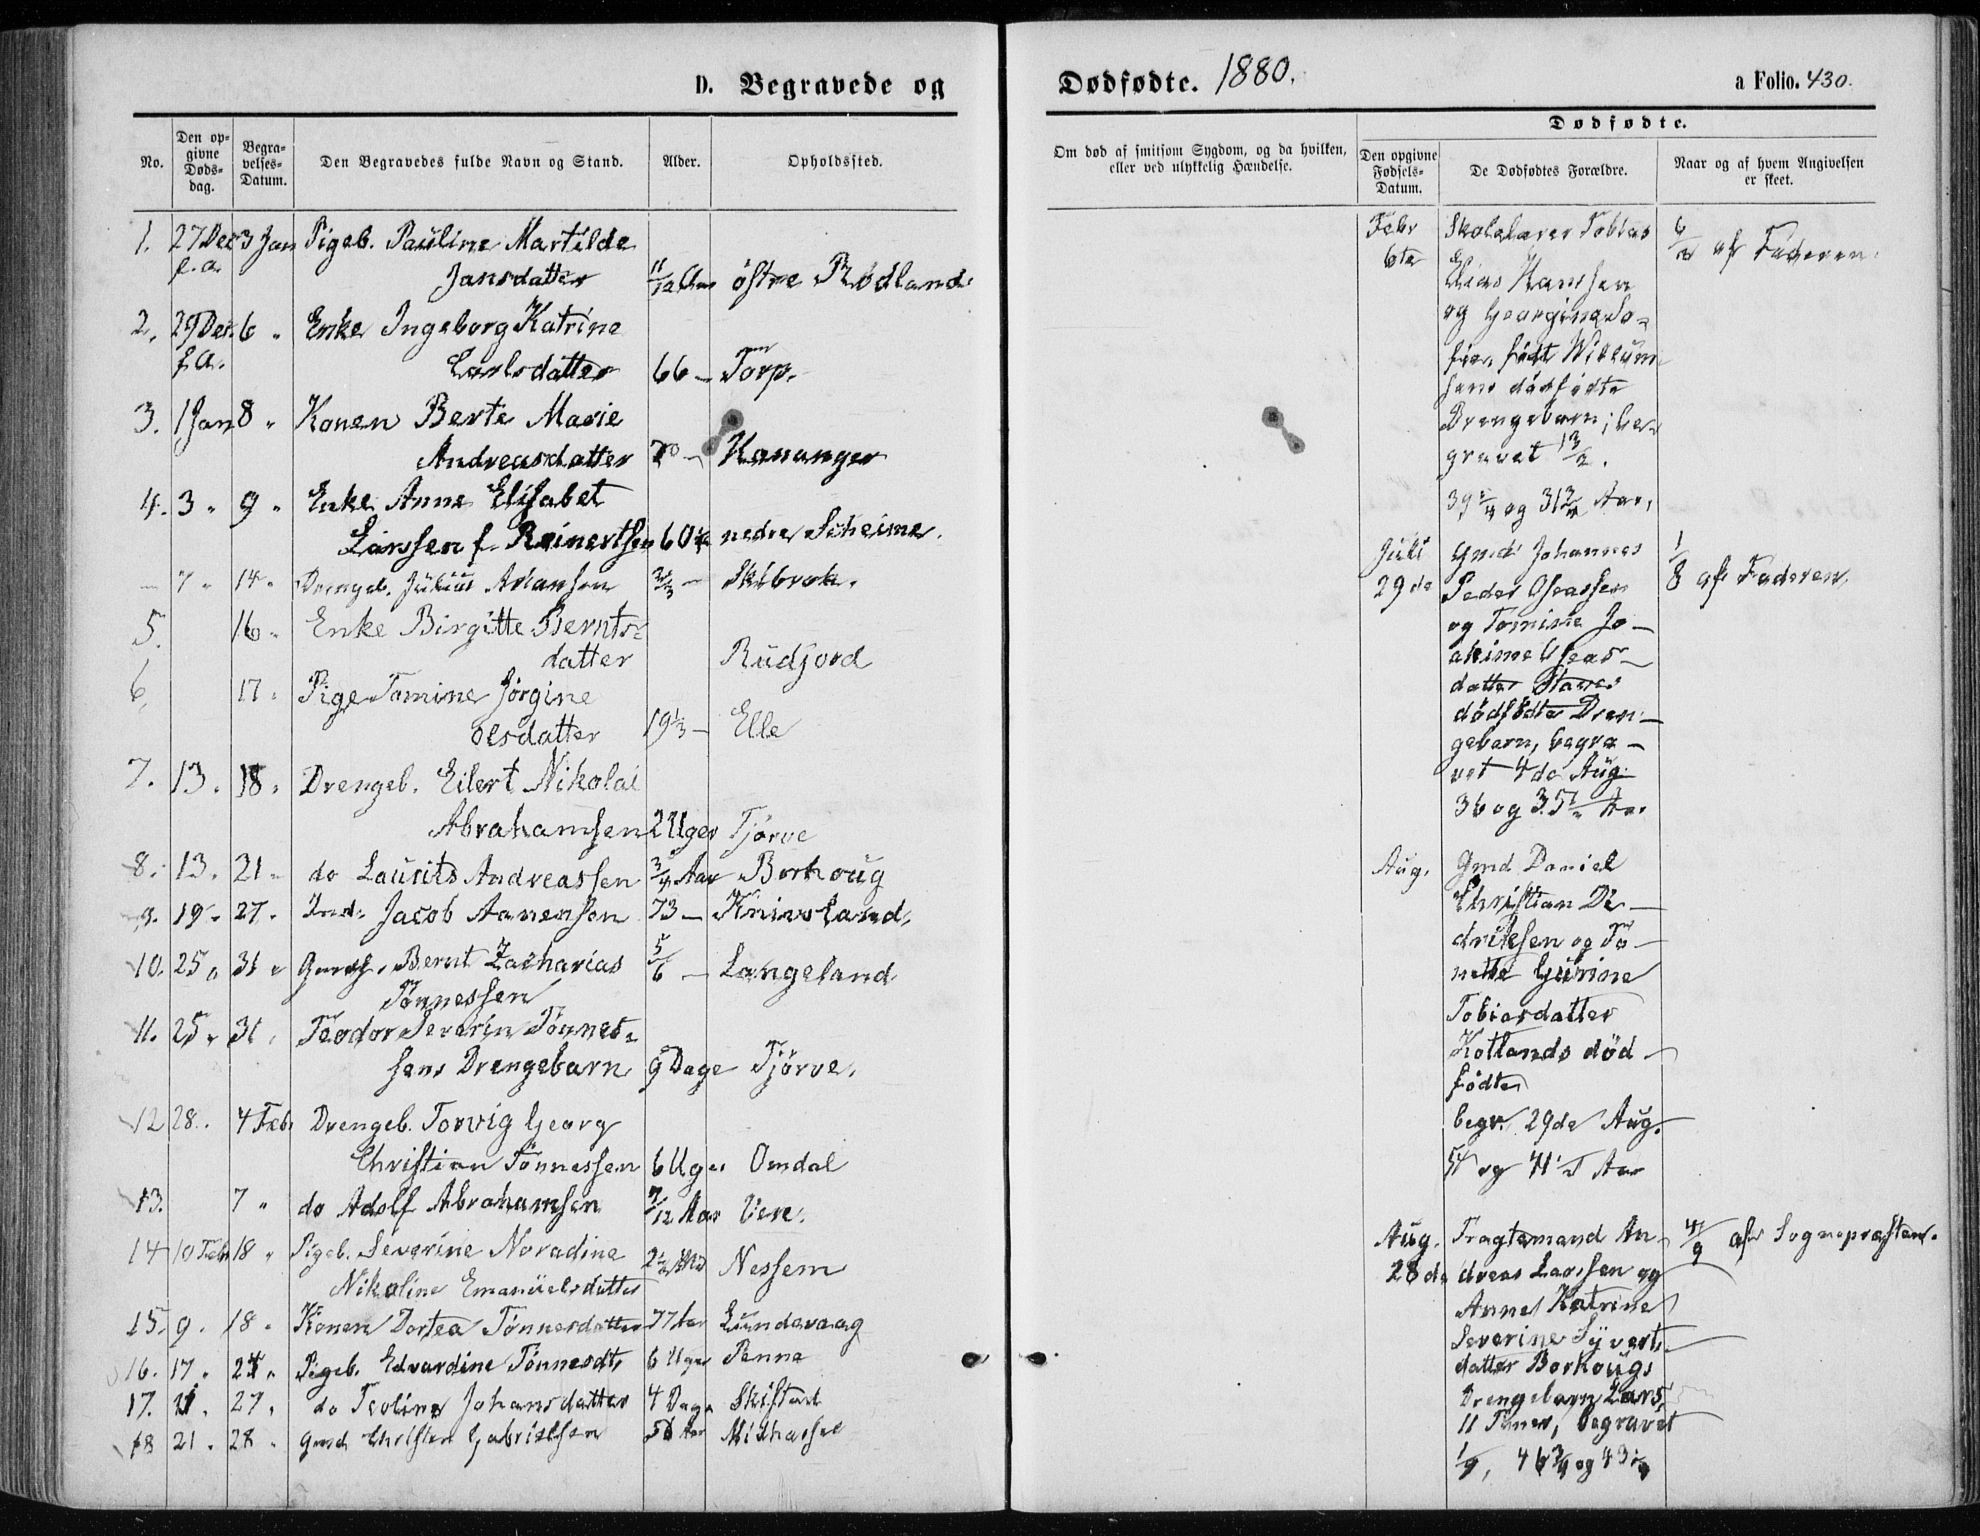 D. Begravede og
No.
Den op-
givne
Døds-
dag.
Begra-
velses-
Datum.
Den Begravedes fulde Navn og Stand.
Alder.
Opholdssted.
1. 27 Dec 3 Jan Pigeb. Pauline Martilde
f.a. Jansdatter 11/12 Aar östre Rödland
2. 29 Dec. 6 " Enke Ingeborg Katrine
f.a. Carlsdatter 66 - Torp.
3. 1 Jan 8 " Konen Berte Marie
Andreasdatter 70 - Hananger
4. 3 " 9 " Enke Anne Elisabet
Larssen f. Reinertsen 60 nedre Scheime.
- 7 " 14 " Drengeb. Julius Arians sen - Skibrok.
5. 16 " Enke Birgitte Bernts-
datter Rudjord
6. 17 " Pige Tomine Jörgine
Olsdatter 19 1/3 - Elle
7. 13. 18 " Drengeb. Eilert Nikolai
Abrahamsen 2 Uger Tjörve
8. 13. 21 " do Laurits Andreassen 3/4 Aar Borhoug
9. 19 " 27 " Ind. Jacob Aanensen 73 - Knivsland.
10. 25 " 31 " Bernt Zacharias 5/6 - Langeland
Tönnessen
11. 25 " 31 " Teodor Severin Tönnes-
sens Drengebarn 9 Dage Tjörve.
12 28. 4 Feb. Drengeb. Torvig Georg
Christian Tönnessen 6 Uger Omdal
13. 7 " do Adolf Abrahamsen 7/12 Aar Vere.
14 10 Feb 18 " Pigeb. Severine Noradine 2 1/2 Nessem
Nikoline Emanuelsdatter
15. 9. 18 " Konen Dortea Tönnesdatter 77 Aar Lundevaag
16. 17 " 24 " Pigeb. Edvardine Tönnesdt. 6 Uger Penne
17. 27 " do Teoline Johansdatter 4 Dage Skifted
18 21 " 28 " Gmd Christen Gabrielsen Aar Midhassel
Dødfødte. 1880.
a Folio. 430.
Om død af smitsom Sygdom, og da hvilken,
eller ved ulykkelig Hændelse.
Dødfødte.
Den opgivne
Fødsels-
Datum.
De Dødfødtes Forældre.
Naar og af hvem Angivelsen
er skeet.
Febr Skolelærer Tobias 6/2 af Faderen.
6te Elias Hanssen
og Georgine So-
fie, født Willum-
sens dödfødte
Drengebarn; be-
gravet 13/2.
39 og 31 Aar.
Juli Gmd Johannes 1/8 af Faderen.
29de Peder Oseassen
og Tomine Jo-
akime Oseas-
datter
dödfödte Dren-
gebarn, begra-
vet 4de Aug.
36 og 35 Aar
Aug. Gmd Daniel
Christian Di-
driksen og To-
nette Gurine
Tobiasdatter
Kotlands död-
födte
begr. 29de Aug.
54 og 41 Aar
Aug. Fragtemand An- 4/9 af Sognepræsten.
28de dreas Larssen og
Anne Katrine
Severine Syverts-
datter Borhougs
Drengebarn Lars,
11 Timer, begravet
1/9, 46 3/4 og 43